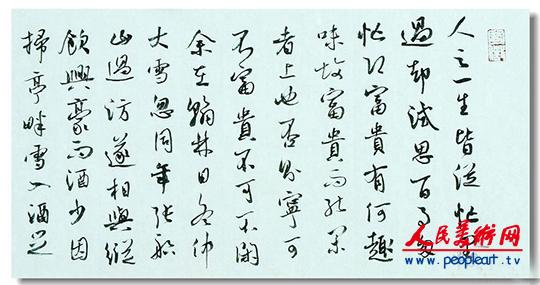 人之一生皆從忙里
過却試思百事匆
忙即富貴有何趣
味故富貴而能閑
者上也否則寧可
不富貴不可不閑
余在翰林日冬仲
大雪忽同年張船
山過訪遂相與縱
飲興豪而酒少因
掃亭畔雪入酒足
人民美術网
www.peopleart.tv